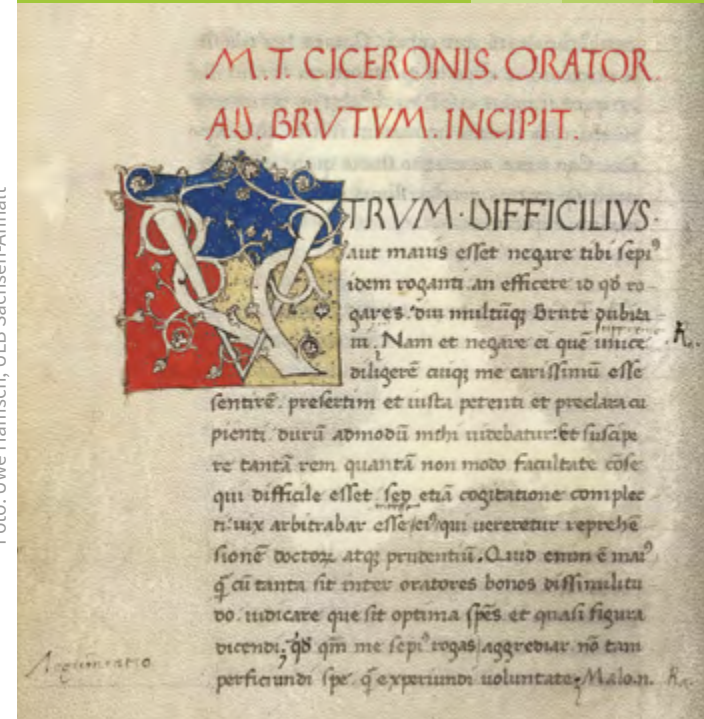 M.T. CICERONIS. ORATOR.
AD. BRVTVM. INCIPIT.
VTRVM·DIFFICILIVS·
aut maius esset negare tibi sepiꝰ
idem roganti an efficere id qđ ro
gares. diu multūqꝫ Brute dubita
ui. Nam et negare ei quē unice
diligerē cuiqꝫ me carissimū esse
sentirē. presertim et iusta petenti et preclara cu
pienti durū admodū mihi uidebatur: et suscipe
re tantā rem quantā non modo facultate cōse
qui difficile esset sed etiā cogitatione complec
ti: uix arbitrabar esse eiꝰ qui uereretur reprehē
sionē doctoꝝ atqꝫ prudentiū. Quid enim ē maiꝰ
q̄ cū tanta sit inter oratores bonos dissimilitu
do. iudicare que sit optima sp̄es et quasi figura
dicendi; qđ qm̄ me sepiꝰ rogas aggrediar nō tam
perficiundi spe q̄ experiundi uoluntate; Malo.n.
Argumentatio
Foto: Uwe Hänisch, ULB Sachsen-Anhalt